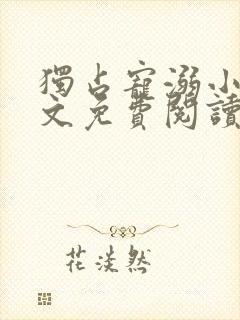 獨占寵溺小
文免費閱讀
花淡然